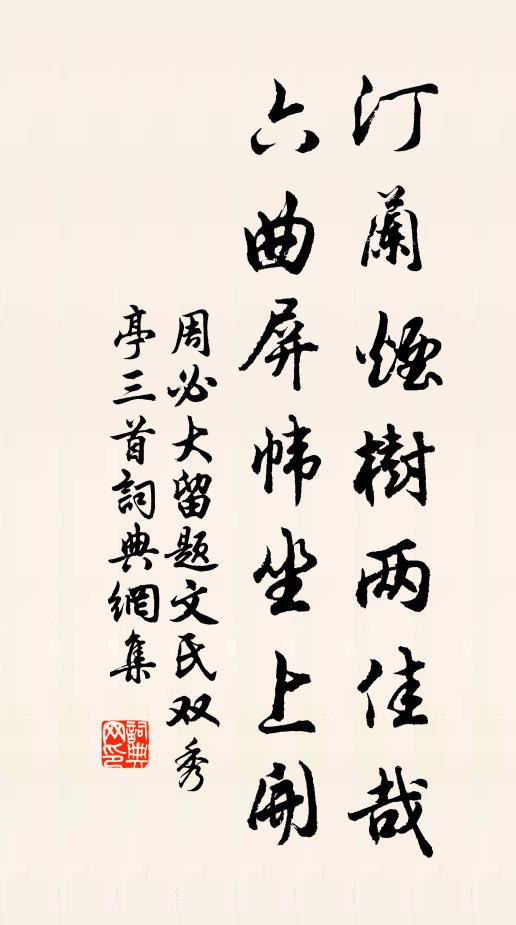 汀蘭煙樹两佳哉
六曲屏帏坐上開
周必大留题文氏双秀
亭三首詞典網集
詞典网印